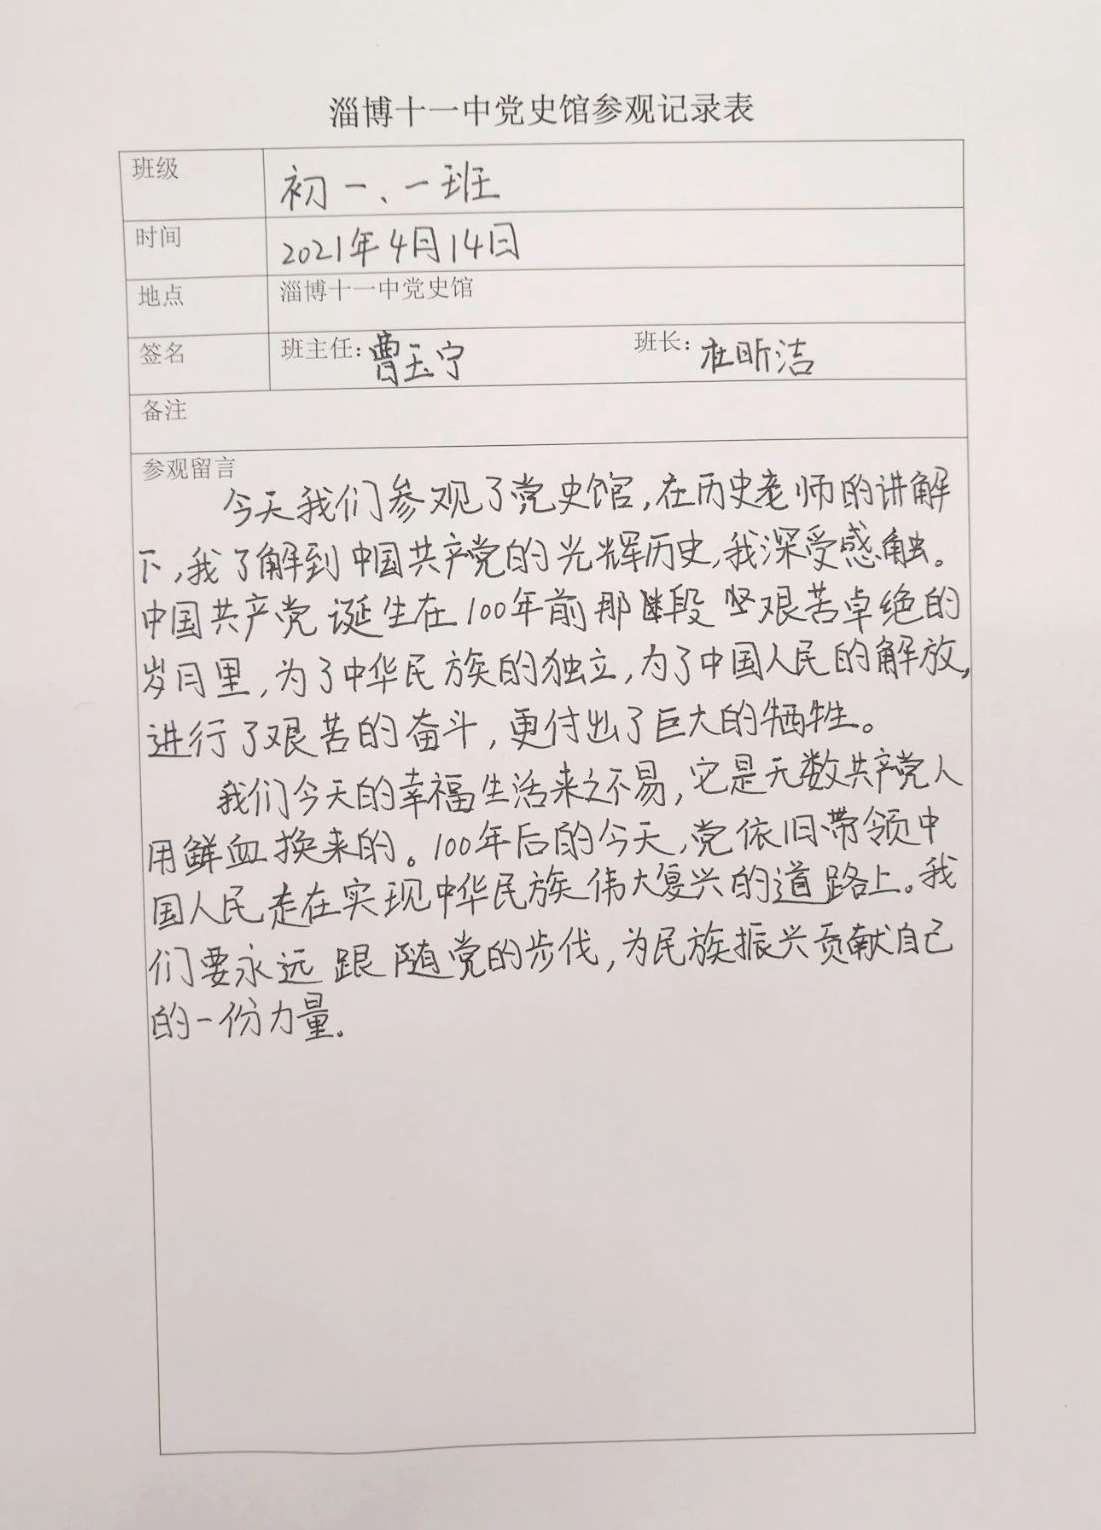 淄博十一中党史馆参观记录表
班级 初一、一班
时间 2021年4月14日
地点 淄博十一中党史馆
签名 班主任：曹玉宁 班长：杜昕洁
备注
参观留言
今天我们参观了党史馆，在历史老师的讲解
下，我了解到中国共产党的光辉历史，我深受感触。
中国共产党诞生在100年前那段艰苦卓绝的
岁月里，为了中华民族的独立，为了中国人民的解放，
进行了艰苦的奋斗，更付出了巨大的牺牲。
我们今天的幸福生活来之不易，它是无数共产党人
用鲜血换来的。100年后的今天，党依旧带领中
国人民走在实现中华民族伟大复兴的道路上。我
们要永远跟随党的步伐，为民族振兴贡献自己
的一份力量.